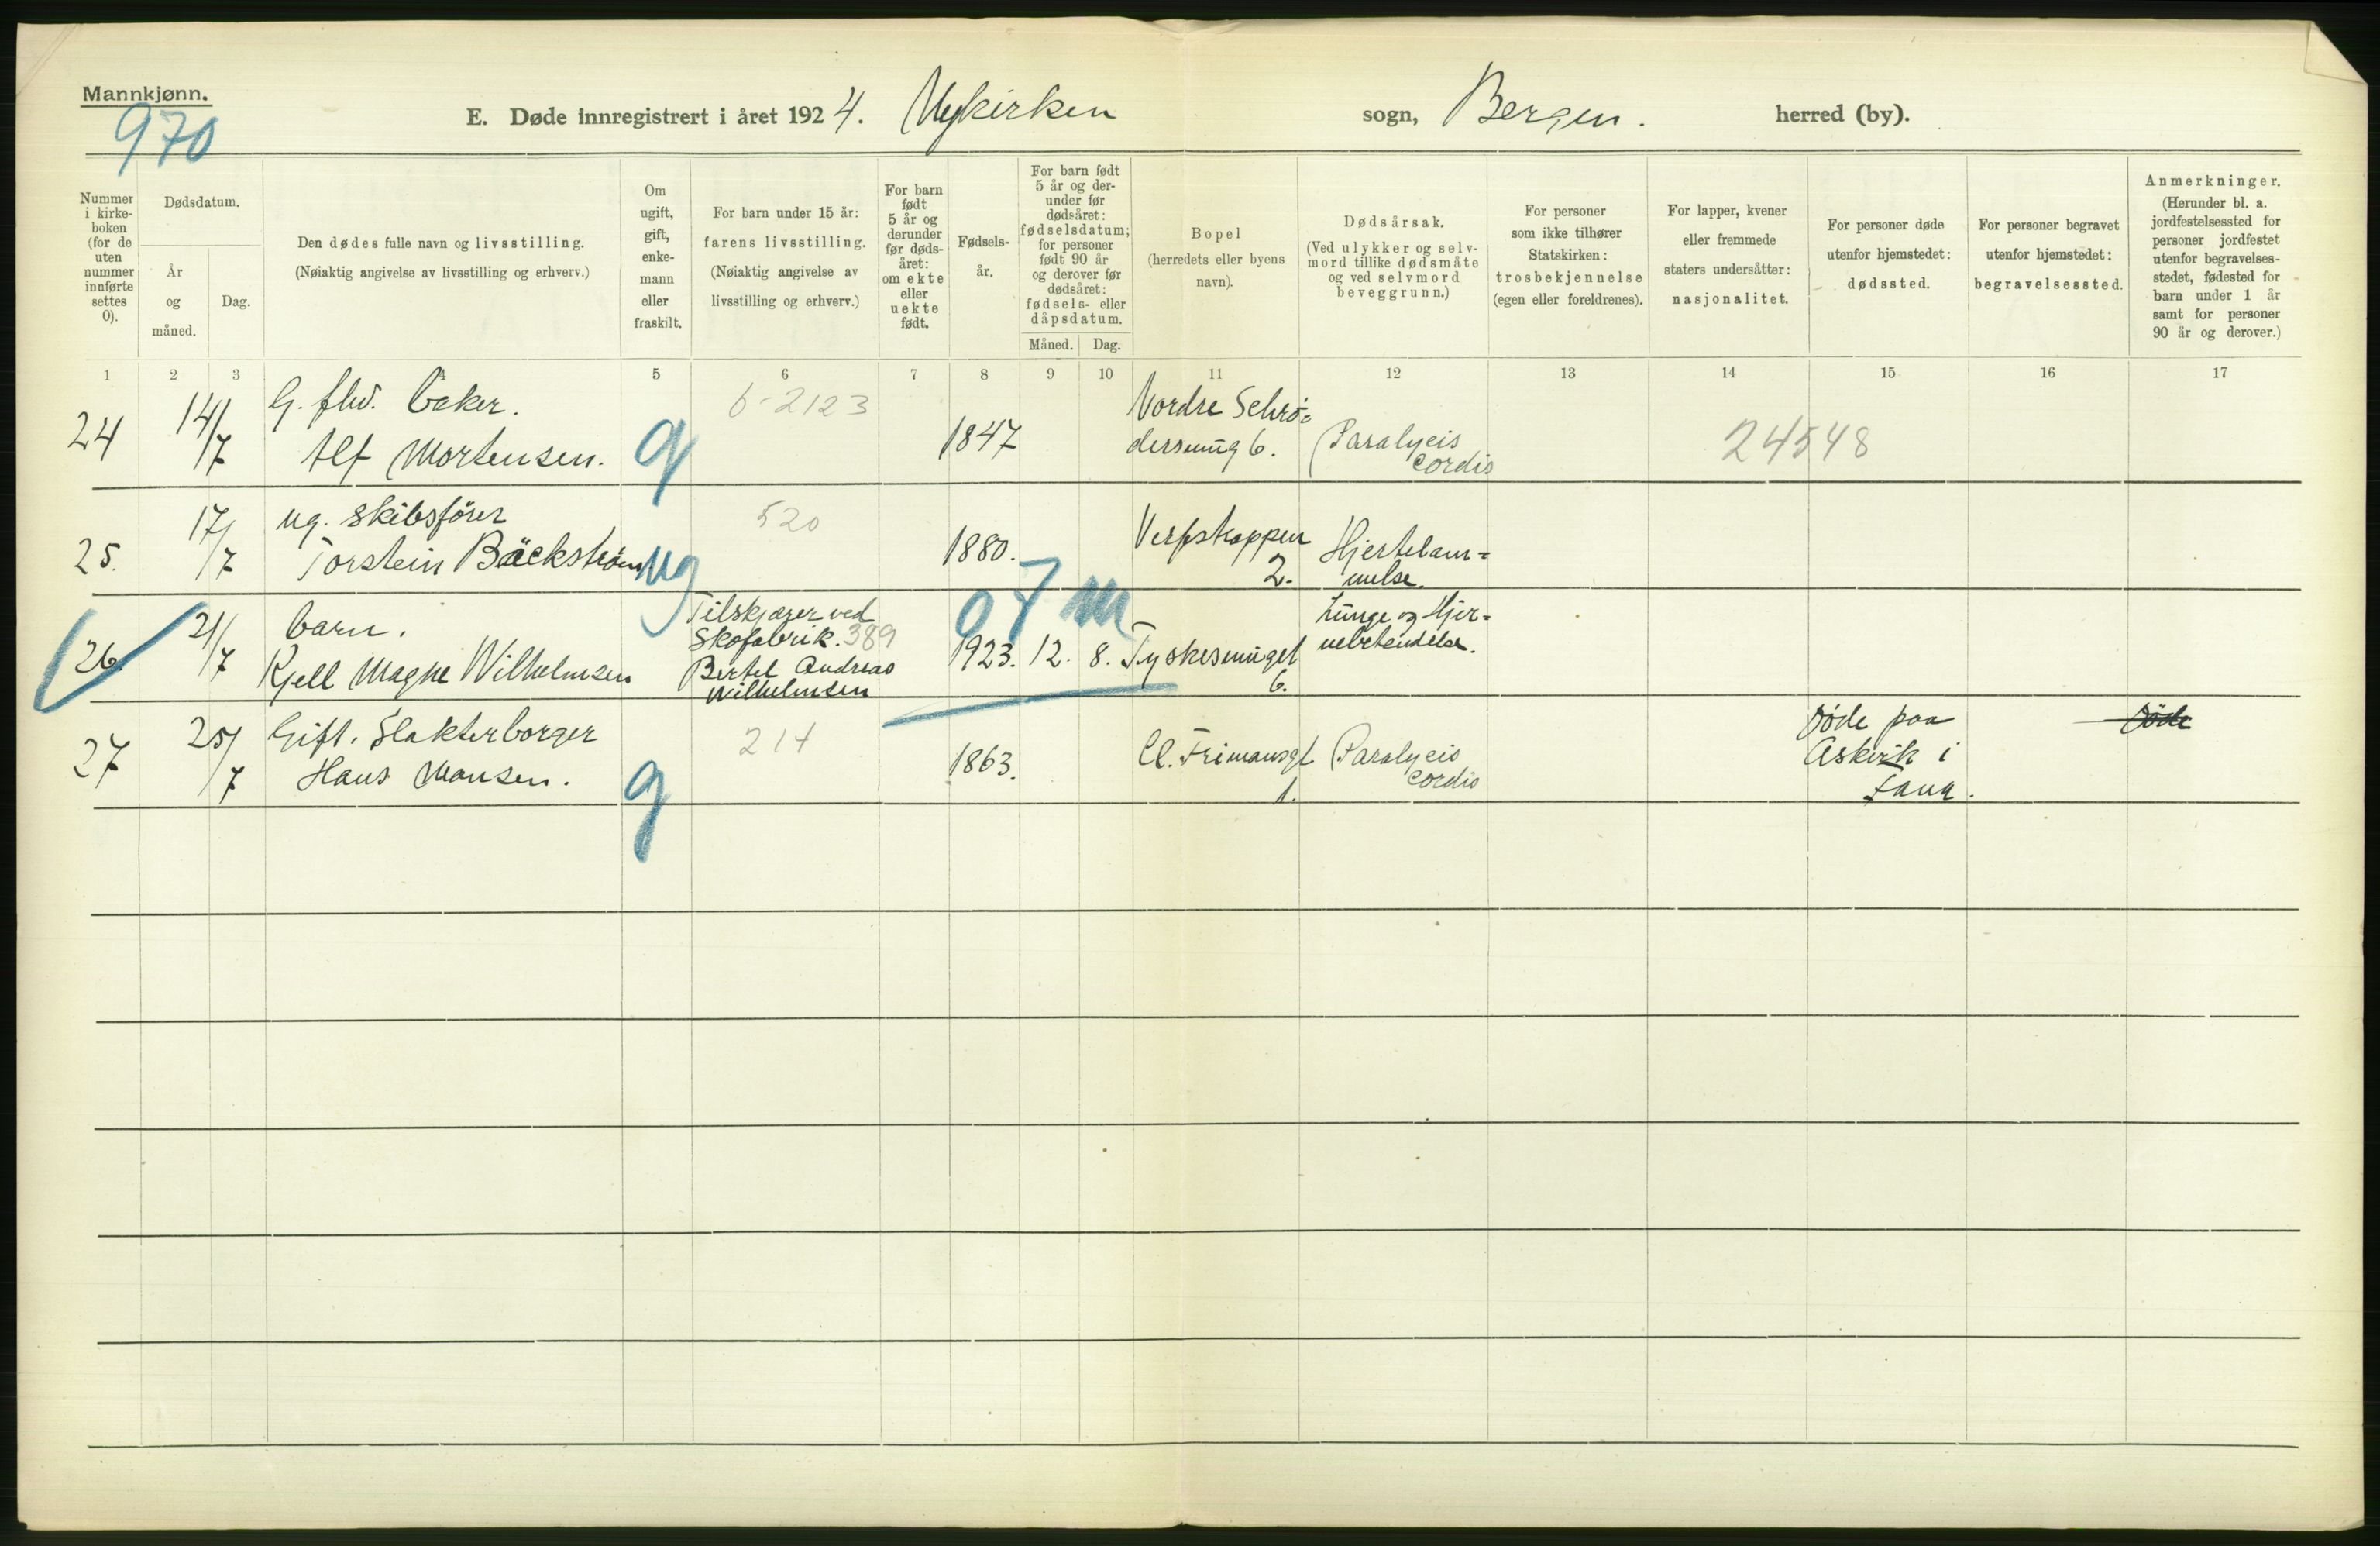 Mannkjønn.
970
E. Døde innregistrert i året 1924. Nykirken sogn, Bergen. herred (by).
Nummer i kirke-boken (for de uten nummer innførte settes 0).
Dødsdatum.
År og måned.
Dag.
Den dødes fulle navn og livsstilling.
(Nøiaktig angivelse av livsstilling og erhverv.)
Om ugift, gift, enke-mann eller fraskilt.
For barn under 15 år:
farens livsstilling.
(Nøiaktig angivelse av livsstilling og erhverv.)
For barn født 5 år og derunder før døds-året: om ekte eller uekte født.
Fødsels-år.
For barn født 5 år og der-under før dødsåret: fødselsdatum; for personer født 90 år og derover før dødsåret: fødsels- eller dåpsdatum.
Måned.
Dag.
Bopel
(herredets eller byens navn).
Dødsårsak.
(Ved ulykker og selv-mord tillike dødsmåte og ved selvmord beveggrunn.)
For personer som ikke tilhører Statskirken: trosbekjennelse (egen eller foreldrenes).
For lapper, kvener eller fremmede staters undersåtter: nasjonalitet.
For personer døde utenfor hjemstedet: dødssted.
For personer begravet utenfor hjemstedet: begravelsessted.
Anmerkninger.
(Herunder bl. a. jordfestelsessted for personer jordfestet utenfor begravelses-stedet, fødested for barn under 1 år samt for personer 90 år og derover.)
1 2 3 4 5 6 7 8 9 10 11 12 13 14 15 16 17
24 14/7 G. fhv. baker. 6-2123 Nordre Schrø=
Alf Mortensen. g 1847 dersmüg 6. Paralycis cordis 24548
25. 17/7 ug. skibsförer 520 2.
Torstein Bäckstrøm ug 1880. Hjertelam=
melse.
07 m
26. 21/7 barn. Tilskjærer ved Lunge og Hjer=
Skofabrik. 389
Kjell Magne Wilhelmsen Bertel Andreas 1923. 12. 8. Tyskesmüget nebetendelse.
Wilhelmsen 6.
27 25/7 Gift. Slakterborger 214 Døde paa Döde
Hans Monsen. g 1863. Cl. Frimansgt Paralycis Askvik i
1. cordis Fana.